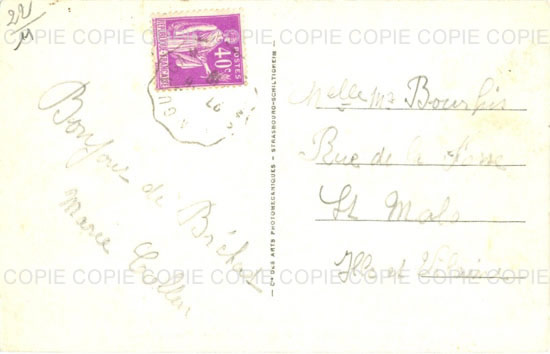 22/3
COPIE COPIE COPIE COPIE COPIE COPIE COPIE COPIE
POSTES
40c
REPUBLIQUE FRANÇAISE
Bonjour de Bréhat
COPIE COPIE COPIE COPIE COPIE COPIE COPIE COPIE
Marie
Cie DES ARTS PHOTOMECANIQUES - STRASBOURG-SCHILTIGHEIM
Melle M Bourhis
Rue de la
St Malo
Ille et Vilaine
COPIE COPIE COPIE COPIE COPIE COPIE COPIE COPIE